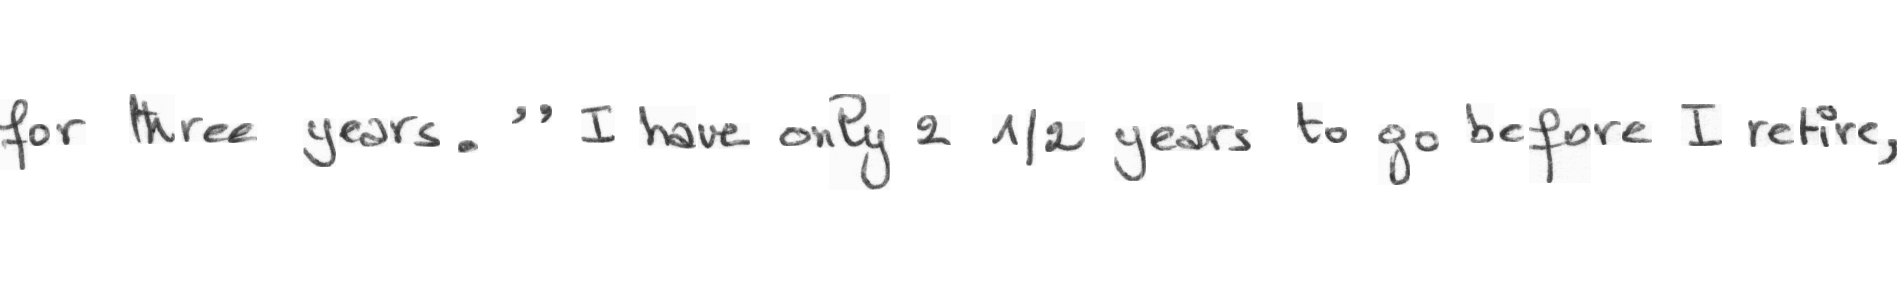 for three years. " I have only 2 1/2 years to go before I retire,